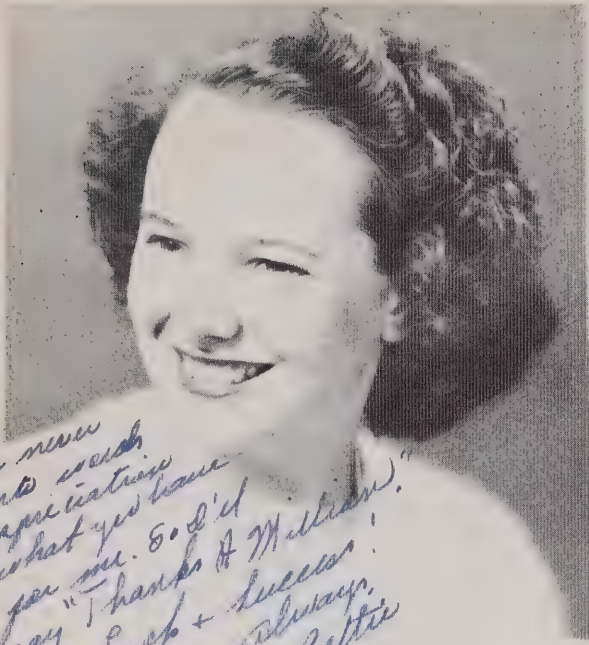 never
into words
appreciation
what you have
for me. So I'll
say "Thanks A Million."
Luck + Success!
Always,